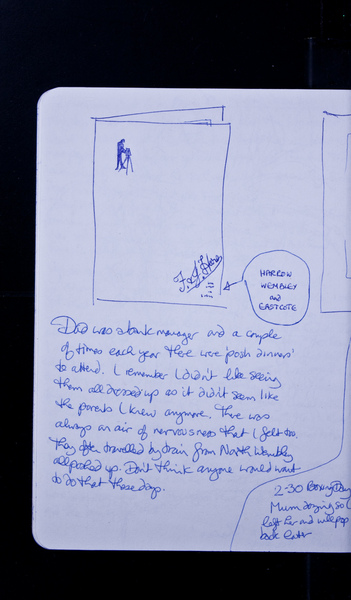 HARROW
WEMBLEY
and
EASTCOTE
Dad was a bank manager and a couple
of times each year there were 'posh dinners'
to attend. I remember I didn't like seeing
them all dressed up as it didn't seem like
the parents I knew anymore. There was
always an air of nervousness that I felt too.
They often travelled by train from North Wembley
all poshed up. Don't think anyone would want
to do that these days.
2-30 Boxing Day
Mum dozing so I
left her and will pop
back later